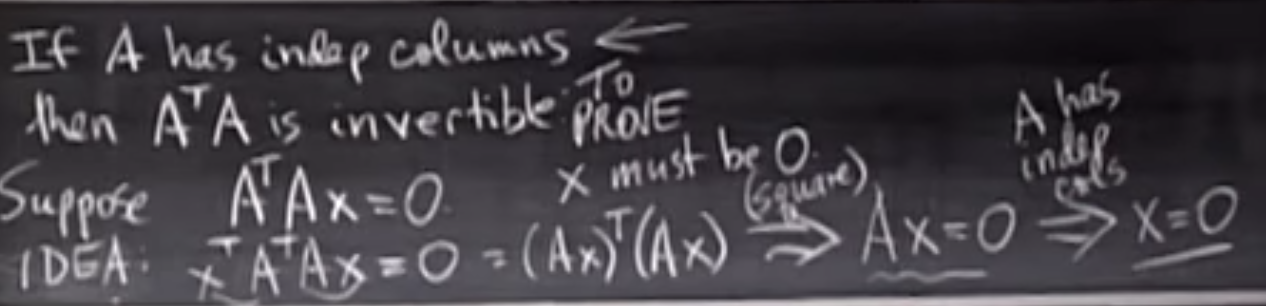 If A has indep columns ←
then AᵀA is invertible. TO PROVE
Suppose AᵀAx = 0. x must be 0.
IDEA: xᵀAᵀAx = 0 = (Ax)ᵀ(Ax) (square) ⇒ Ax = 0 A has indep cols ⇒ x = 0